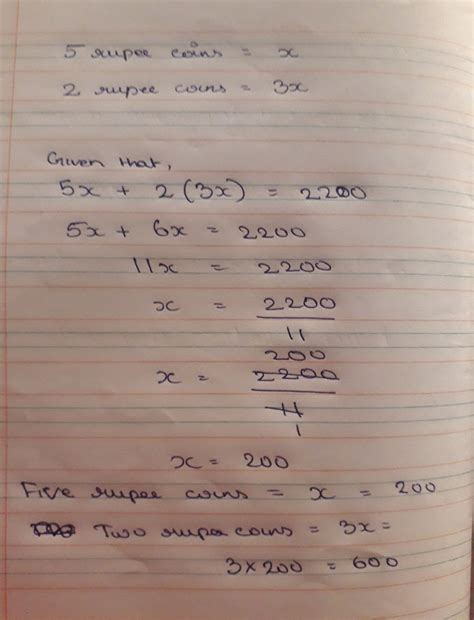 5 rupee coins = x
2 rupee coins = 3x
Given that,
5x + 2(3x) = 2200
5x + 6x = 2200
11x = 2200
x = 2200
11
200
x = 2200
11
1
x = 200
Five rupee coins = x = 200
Two rupee coins = 3x =
3×200 = 600